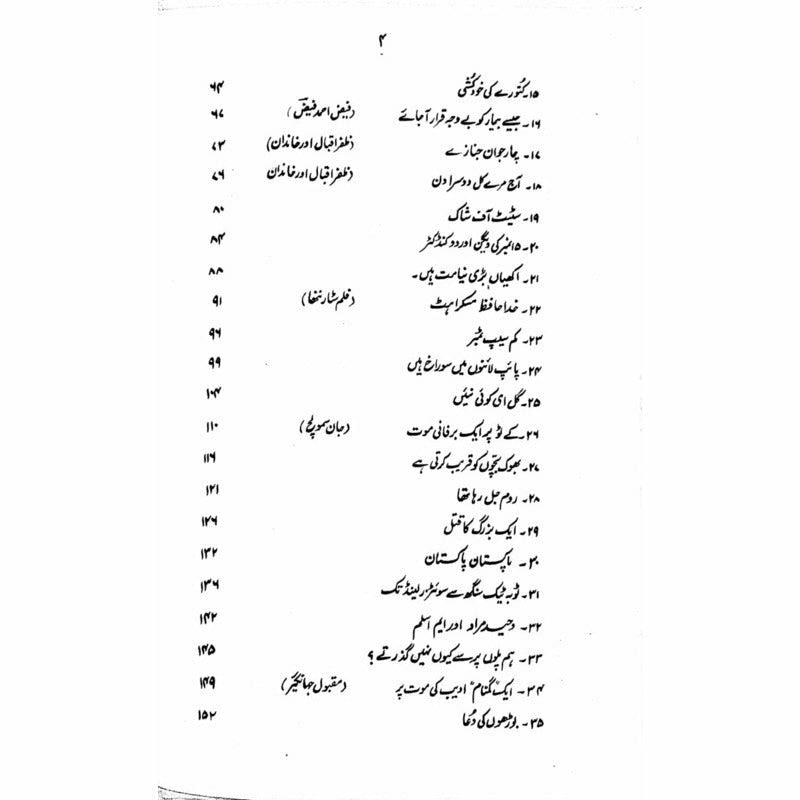 ۴
۱۵۔ کٹورے کی خودکُشی ۶۴
۱۶۔ جیسے بیمار کو بے وجہ قرار آ جائے (فیض احمد فیضؔ) ۶۷
۱۷۔ چار جوان جنازے (ظفر اقبال اور خاندان) ۷۳
۱۸۔ آج مرے کل دوسرا دن (ظفر اقبال اور خاندان) ۷۶
۱۹۔ سٹیٹ آف شاک ۸۰
۲۰۔ ۱۵ نمبر کی ویگن اور دو کنڈکٹر ۸۴
۲۱۔ اکھیاں بڑی نیامت ہیں۔ ۸۸
۲۲۔ خدا حافظ مسکراہٹ (فلم سٹار ننھا) ۹۱
۲۳۔ کم سیپ نمبر ۹۶
۲۴۔ پائپ لائنوں میں سوراخ ہیں ۹۹
۲۵۔ گل ای کوئی نئیں ۱۰۴
۲۶۔ کے ٹو پر ایک برفانی موت (جان سمولچ) ۱۱۰
۲۷۔ بھوک بچّوں کو قریب کرتی ہے ۱۱۶
۲۸۔ روم جل رہا تھا ۱۲۱
۲۹۔ ایک بزرگ کا قتل ۱۲۶
۳۰۔ پاکستان پاکستان ۱۳۲
۳۱۔ ٹوبہ ٹیک سنگھ سے سوئٹزرلینڈ تک ۱۳۶
۳۲۔ وحید مراد اور ایم اسلم ۱۴۲
۳۳۔ ہم پلوں پر سے کیوں نہیں گذرتے؟ ۱۴۵
۳۴۔ ایک "گمنام" ادیب کی موت پر (مقبول جہانگیر) ۱۴۹
۳۵۔ بوڑھوں کی دُعا ۱۵۲